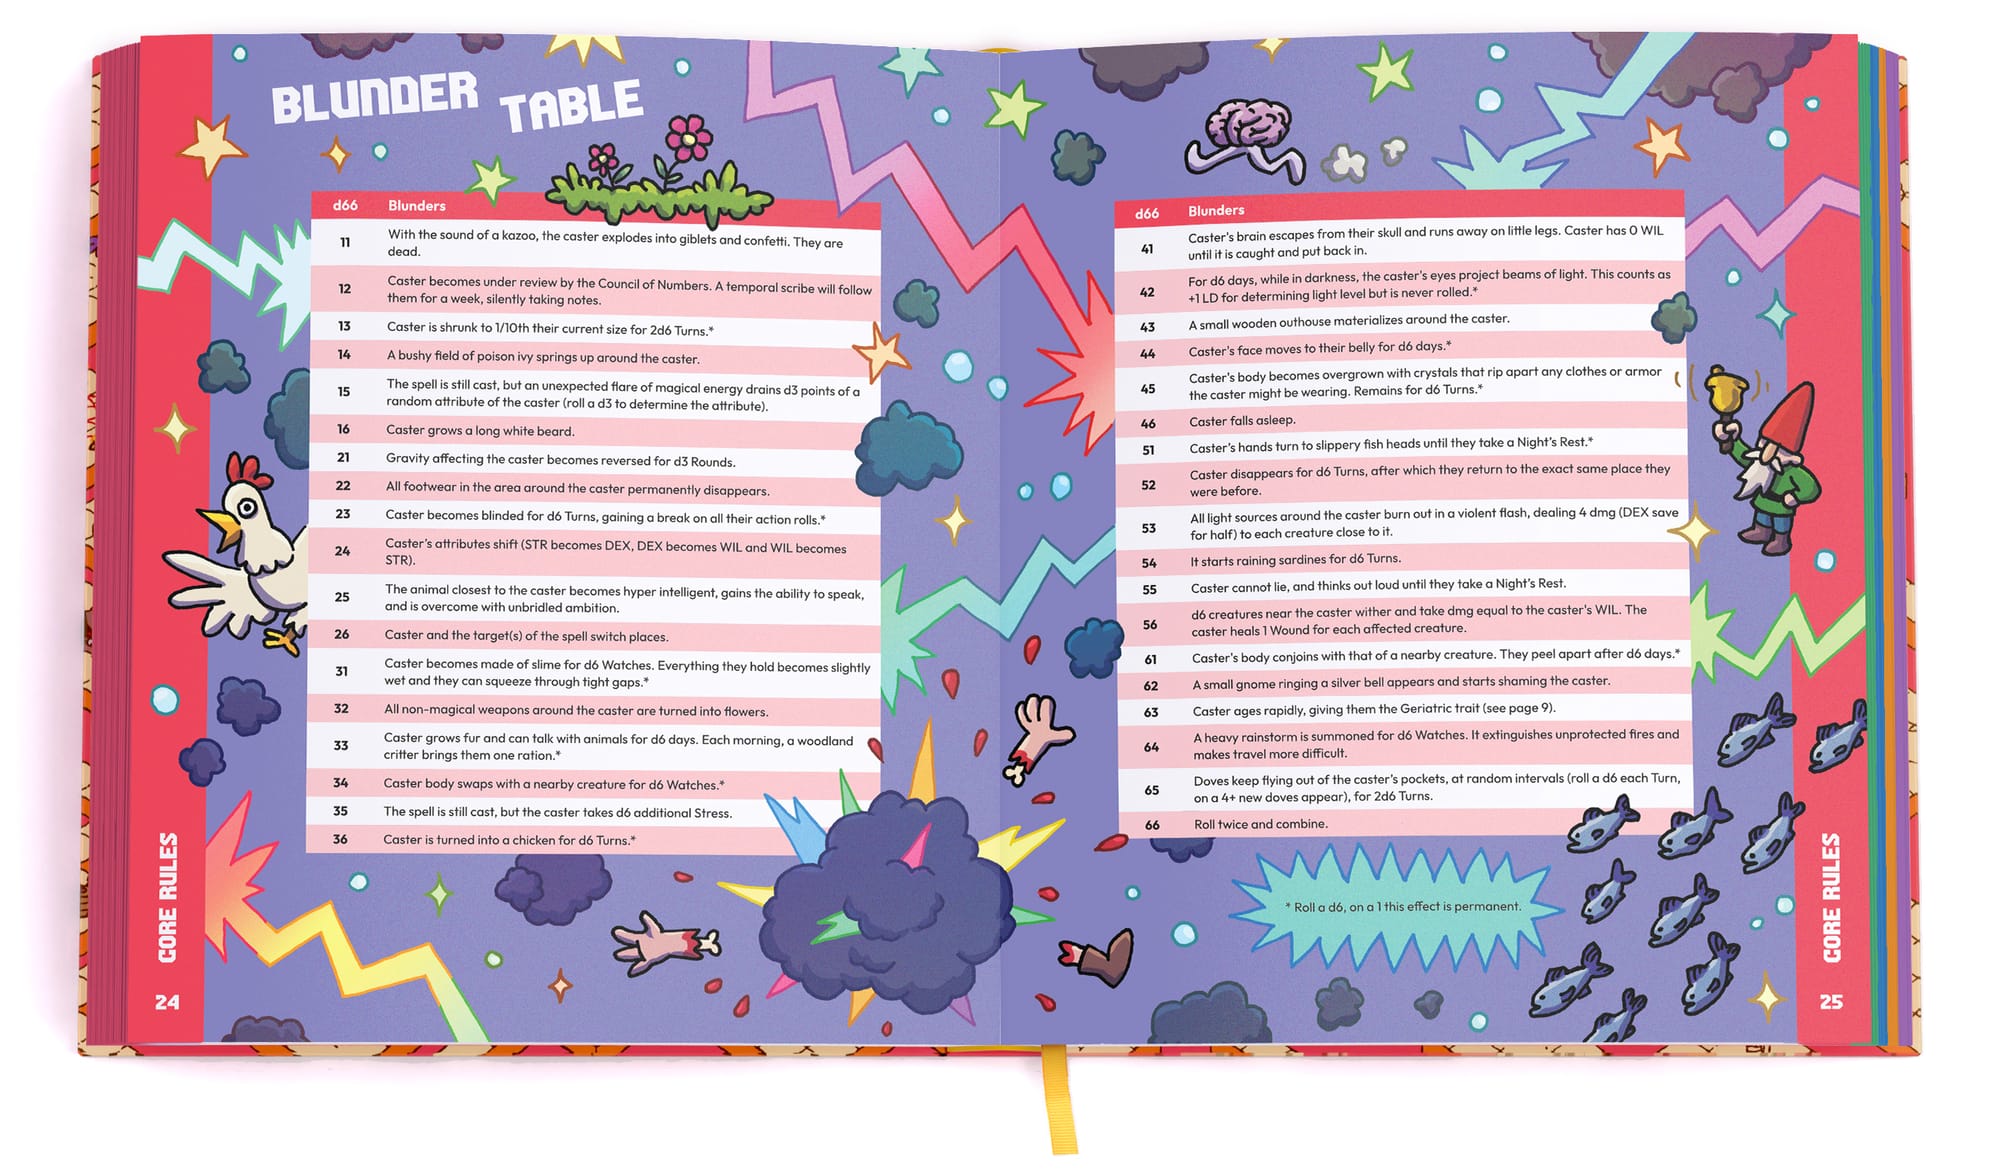 BLUNDER TABLE
d66 Blunders
11 With the sound of a kazoo, the caster explodes into giblets and confetti. They are
dead.
12 Caster becomes under review by the Council of Numbers. A temporal scribe will follow
them for a week, silently taking notes.
13 Caster is shrunk to 1/10th their current size for 2d6 Turns.*
14 A bushy field of poison ivy springs up around the caster.
15 The spell is still cast, but an unexpected flare of magical energy drains d3 points of a
random attribute of the caster (roll a d3 to determine the attribute).
16 Caster grows a long white beard.
21 Gravity affecting the caster becomes reversed for d3 Rounds.
22 All footwear in the area around the caster permanently disappears.
23 Caster becomes blinded for d6 Turns, gaining a break on all their action rolls.*
24 Caster's attributes shift (STR becomes DEX, DEX becomes WIL and WIL becomes
STR).
25 The animal closest to the caster becomes hyper intelligent, gains the ability to speak,
and is overcome with unbridled ambition.
26 Caster and the target(s) of the spell switch places.
31 Caster becomes made of slime for d6 Watches. Everything they hold becomes slightly
wet and they can squeeze through tight gaps.*
32 All non-magical weapons around the caster are turned into flowers.
33 Caster grows fur and can talk with animals for d6 days. Each morning, a woodland
critter brings them one ration.*
34 Caster body swaps with a nearby creature for d6 Watches.*
35 The spell is still cast, but the caster takes d6 additional Stress.
36 Caster is turned into a chicken for d6 Turns.*
CORE RULES
24
d66 Blunders
41 Caster's brain escapes from their skull and runs away on little legs. Caster has 0 WIL
until it is caught and put back in.
42 For d6 days, while in darkness, the caster's eyes project beams of light. This counts as
+1 LD for determining light level but is never rolled.*
43 A small wooden outhouse materializes around the caster.
44 Caster's face moves to their belly for d6 days.*
45 Caster's body becomes overgrown with crystals that rip apart any clothes or armor
the caster might be wearing. Remains for d6 Turns.*
46 Caster falls asleep.
51 Caster's hands turn to slippery fish heads until they take a Night's Rest.*
52 Caster disappears for d6 Turns, after which they return to the exact same place they
were before.
53 All light sources around the caster burn out in a violent flash, dealing 4 dmg (DEX save
for half) to each creature close to it.
54 It starts raining sardines for d6 Turns.
55 Caster cannot lie, and thinks out loud until they take a Night's Rest.
56 d6 creatures near the caster wither and take dmg equal to the caster's WIL. The
caster heals 1 Wound for each affected creature.
61 Caster's body conjoins with that of a nearby creature. They peel apart after d6 days.*
62 A small gnome ringing a silver bell appears and starts shaming the caster.
63 Caster ages rapidly, giving them the Geriatric trait (see page 9).
64 A heavy rainstorm is summoned for d6 Watches. It extinguishes unprotected fires and
makes travel more difficult.
65 Doves keep flying out of the caster's pockets, at random intervals (roll a d6 each Turn,
on a 4+ new doves appear), for 2d6 Turns.
66 Roll twice and combine.
* Roll a d6, on a 1 this effect is permanent.
CORE RULES
25